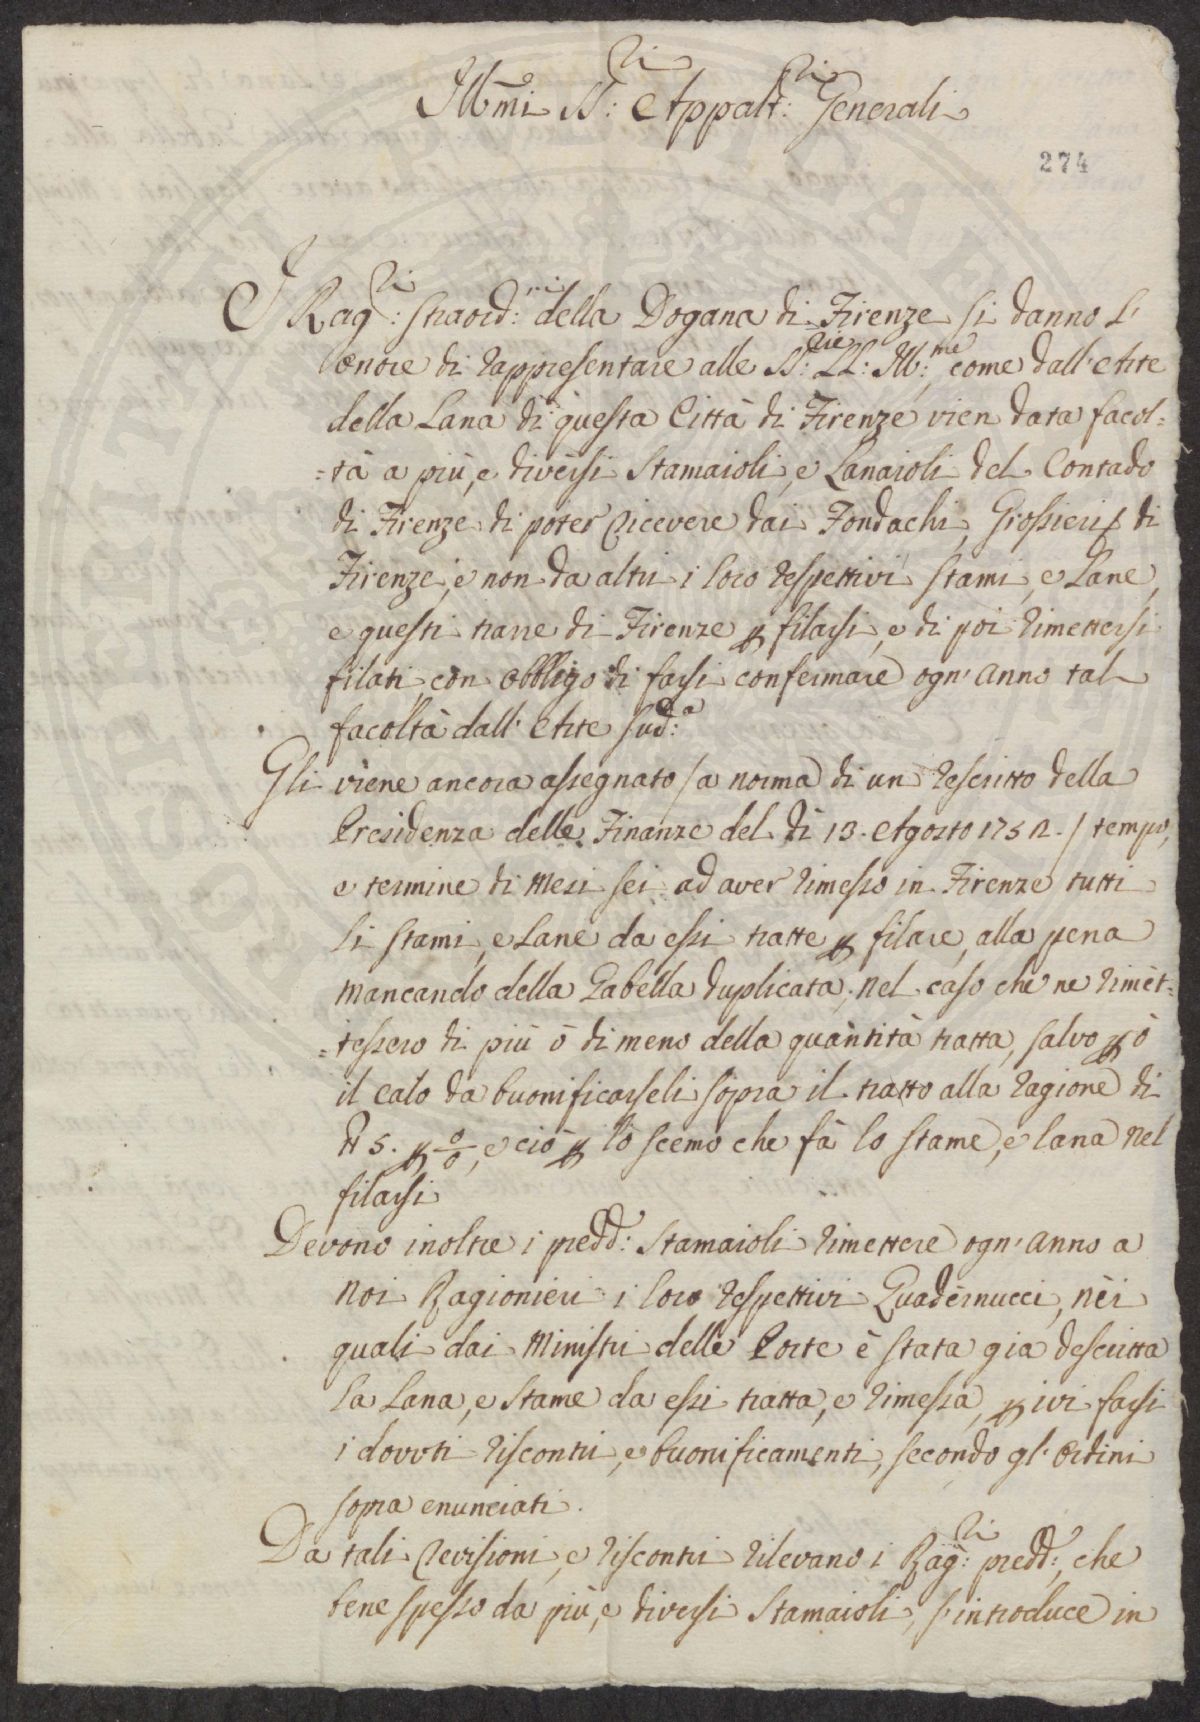 Ill̃mi SS:ri Appalt:ri Generali
274
I Rag:ri straord:rii della Dogana di Firenze si danno l'
onore di rappresentare alle SS:rie LL: Ill:me, come dall'Arte
della Lana di questa Città di Firenze vien data facol=
=tà a più, e diversi Stamaioli, e Lanaioli del Contado
di Firenze di poter ricevere dai Fondachi, Grossieri di
Firenze, e non da altri i loro respettivi stami, e Lane,
e questi trarre di Firenze ꝑ filarsi, e di poi rimettersi
filati con obbligo di farsi confermare ogn'anno tal
facoltà dall'Arte sud:a
Gli viene ancora assegnato /a norma di un rescritto della
Presidenza delle Finanze del dì 13. Agosto 1752./ tempo,
e termine di Mesi sei ad aver rimesso in Firenze tutti
li stami, e Lane da essi tratte ꝑ filare, alla pena
mancando della Gabella duplicata, nel caso che ne rimet=
=tessero di più ò di meno della quantità tratta, salvo ꝑò
il calo da buonificarseli sopra il tratto alla ragione di
℔ 5. ꝑ %, e ciò ꝑ lò scemo che fà lo stame, e lana nel
filarsi
Devono inoltre i predd: Stamaioli rimettere ogn'anno a
noi Ragionieri i loro respettivi Quadernucci, nei
quali dai Ministri delle Porte è stata gia descritta
la Lana, e Stame da essi tratta, e rimessa, ꝑ ivi farsi
i dovuti riscontri, e buonificamenti, secondo gl'Ordini
sopra enunciati.
Da tali revisioni, e riscontri rilevano i Rag:ri predd:, che
bene spesso da più, e diversi Stamaioli, s'introduce in